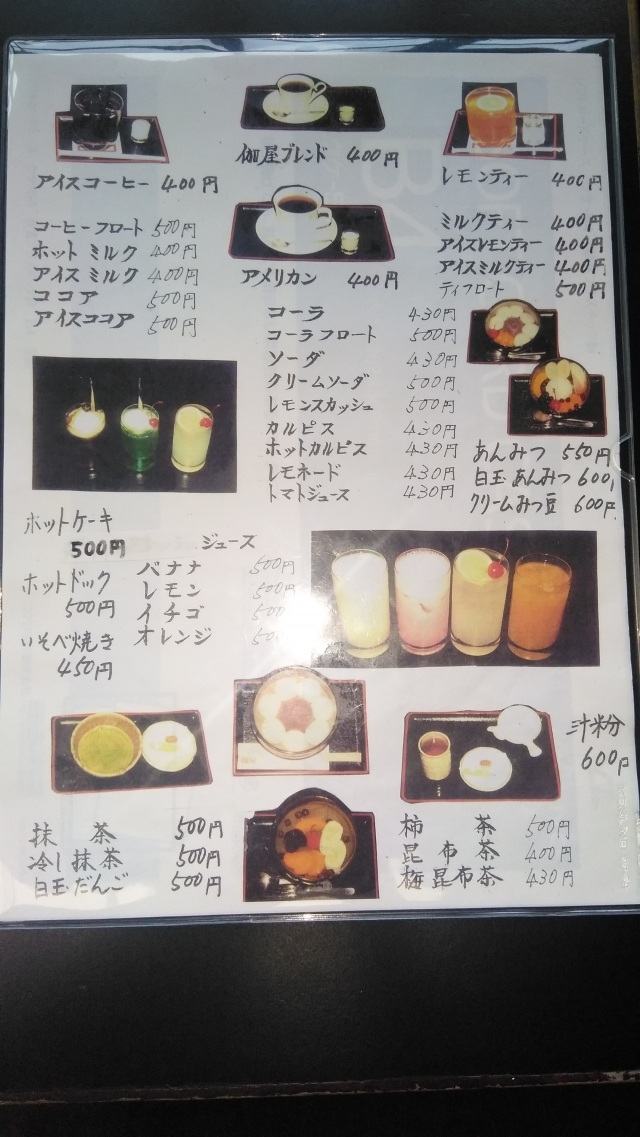 アイスコーヒー 400円
伽屋ブレンド 400円
レモンティー 400円
コーヒーフロート 500円
ホット ミルク 400円
アイス ミルク 400円
ココア 500円
アイスココア 500円
アメリカン 400円
ミルクティー 400円
アイスレモンティー 400円
アイスミルクティー 400円
ティフロート 500円
コーラ 430円
コーラフロート 500円
ソーダ 430円
クリームソーダ 500円
レモンスカッシュ 500円
カルピス 430円
ホットカルピス 430円
レモネード 430円
トマトジュース 430円
あんみつ 550円
白玉あんみつ 600
クリームみつ豆 600円
ホットケーキ
500円
ホットドック
500円
いそべ焼き
450円
ジュース
バナナ 500円
レモン 500円
イチゴ 500
オレンジ
汁粉
600円
抹茶 500円
冷し抹茶 500円
白玉だんご 500円
柿茶 500円
昆布茶 400円
梅昆布茶 430円